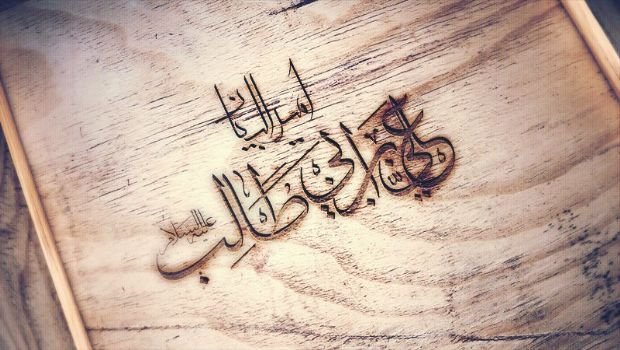 امير البيان
علي بن ابي طالب
عليه السلام